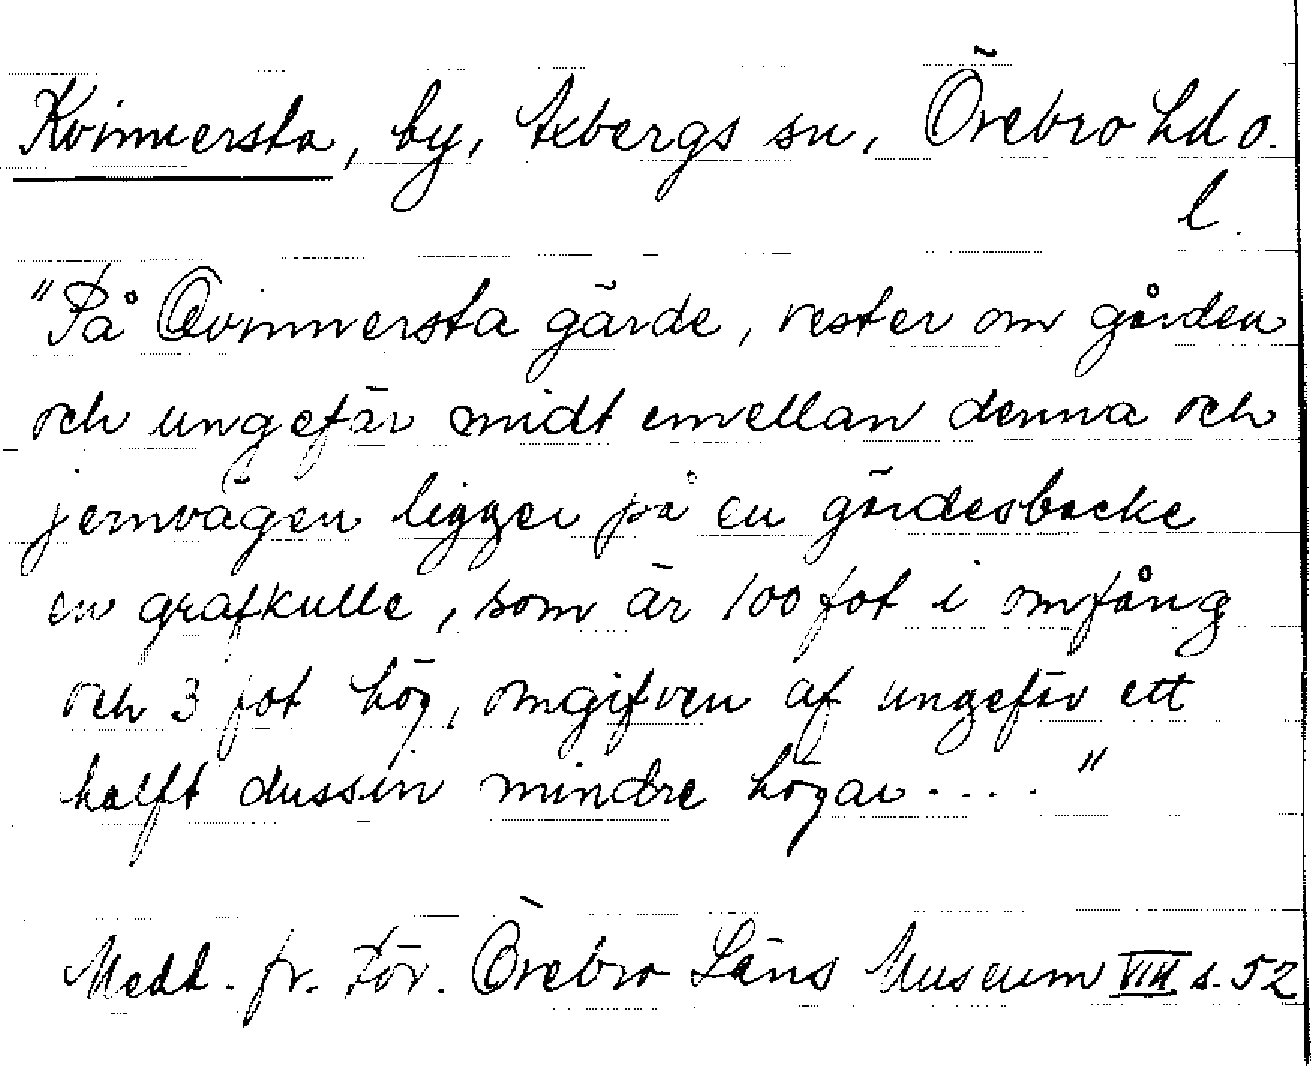 Kvinnersta, by, Axbergs sn, Örebro hd o.
l.
"På Qvinnersta gärde, vester om gården
och ungefär midt emellan denna och
jernvägen ligger på en gärdesbacke
en grafkulle, som är 100 fot i omfång
och 3 fot hög, omgifven af ungefär ett
halft dussin mindre högar...."
Medd. fr. För. Örebro Läns Museum VIII s. 52